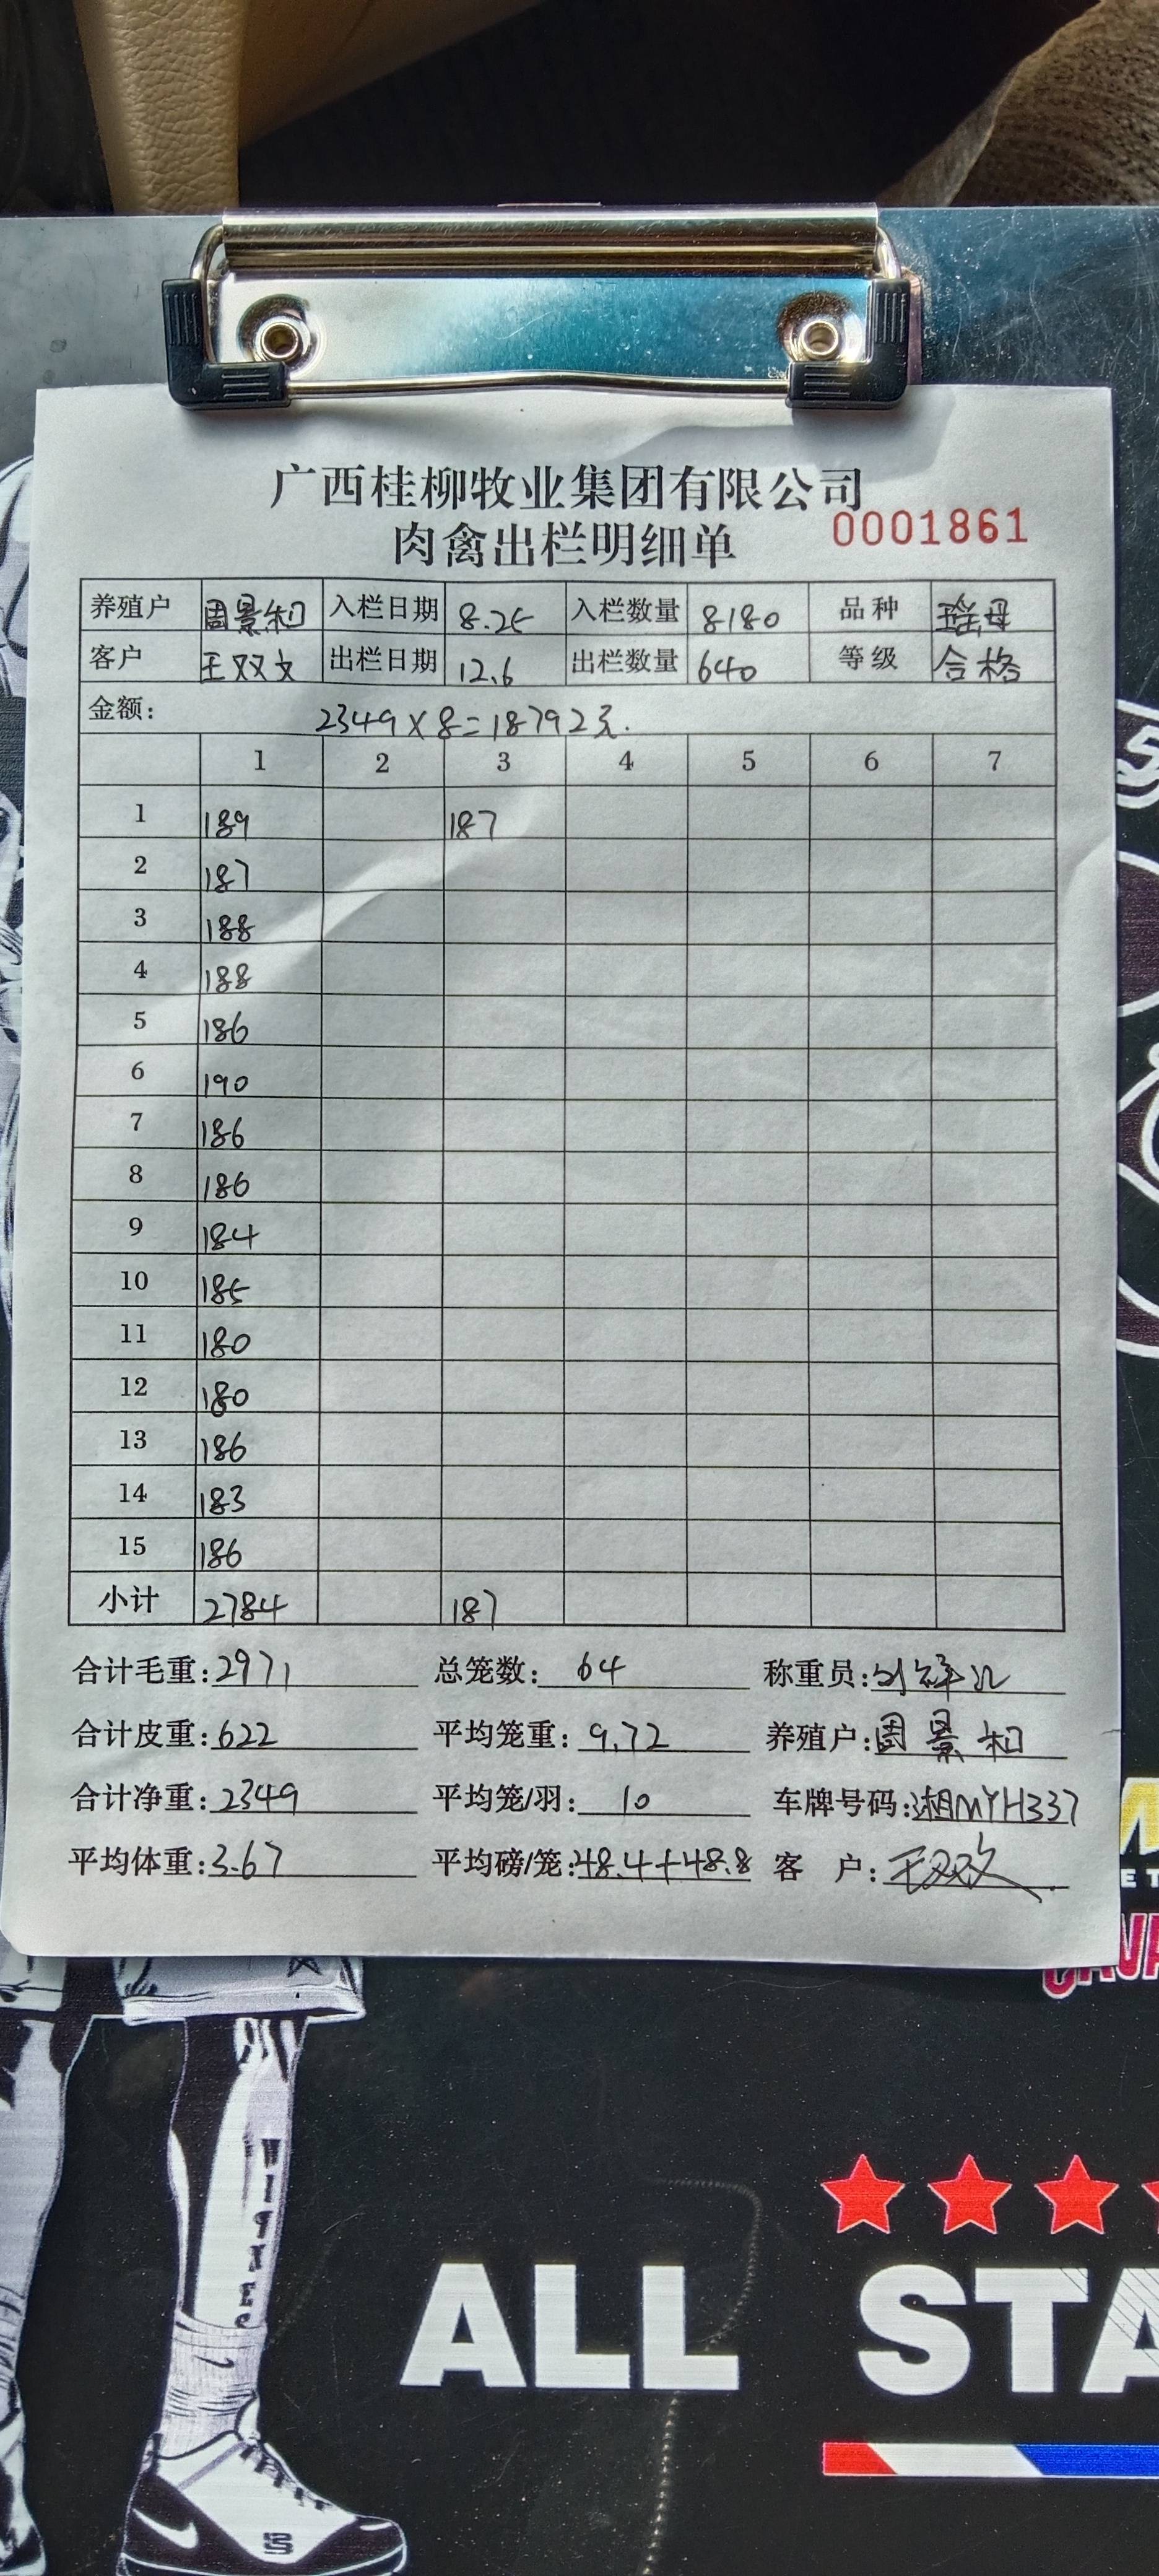 广西桂柳牧业集团有限公司
肉禽出栏明细单 0001861
养殖户 周景和 入栏日期 8.25 入栏数量 8180 品种 瑶母
客户 王双文 出栏日期 12.6 出栏数量 640 等级 合格
金额: 2349×8=18792元.
1 2 3 4 5 6 7
1 189 187
2 187
3 188
4 188
5 186
6 190
7 186
8 186
9 184
10 185
11 180
12 180
13 186
14 183
15 186
小计 2784 187
合计毛重: 2971 总笼数: 64 称重员:
合计皮重: 622 平均笼重: 9.72 养殖户: 周景和
合计净重: 2349 平均笼/羽: 10 车牌号码: 湘MYH337
平均体重: 3.67 平均磅/笼: 48.4+48.8 客 户: 王双文
ALL STA